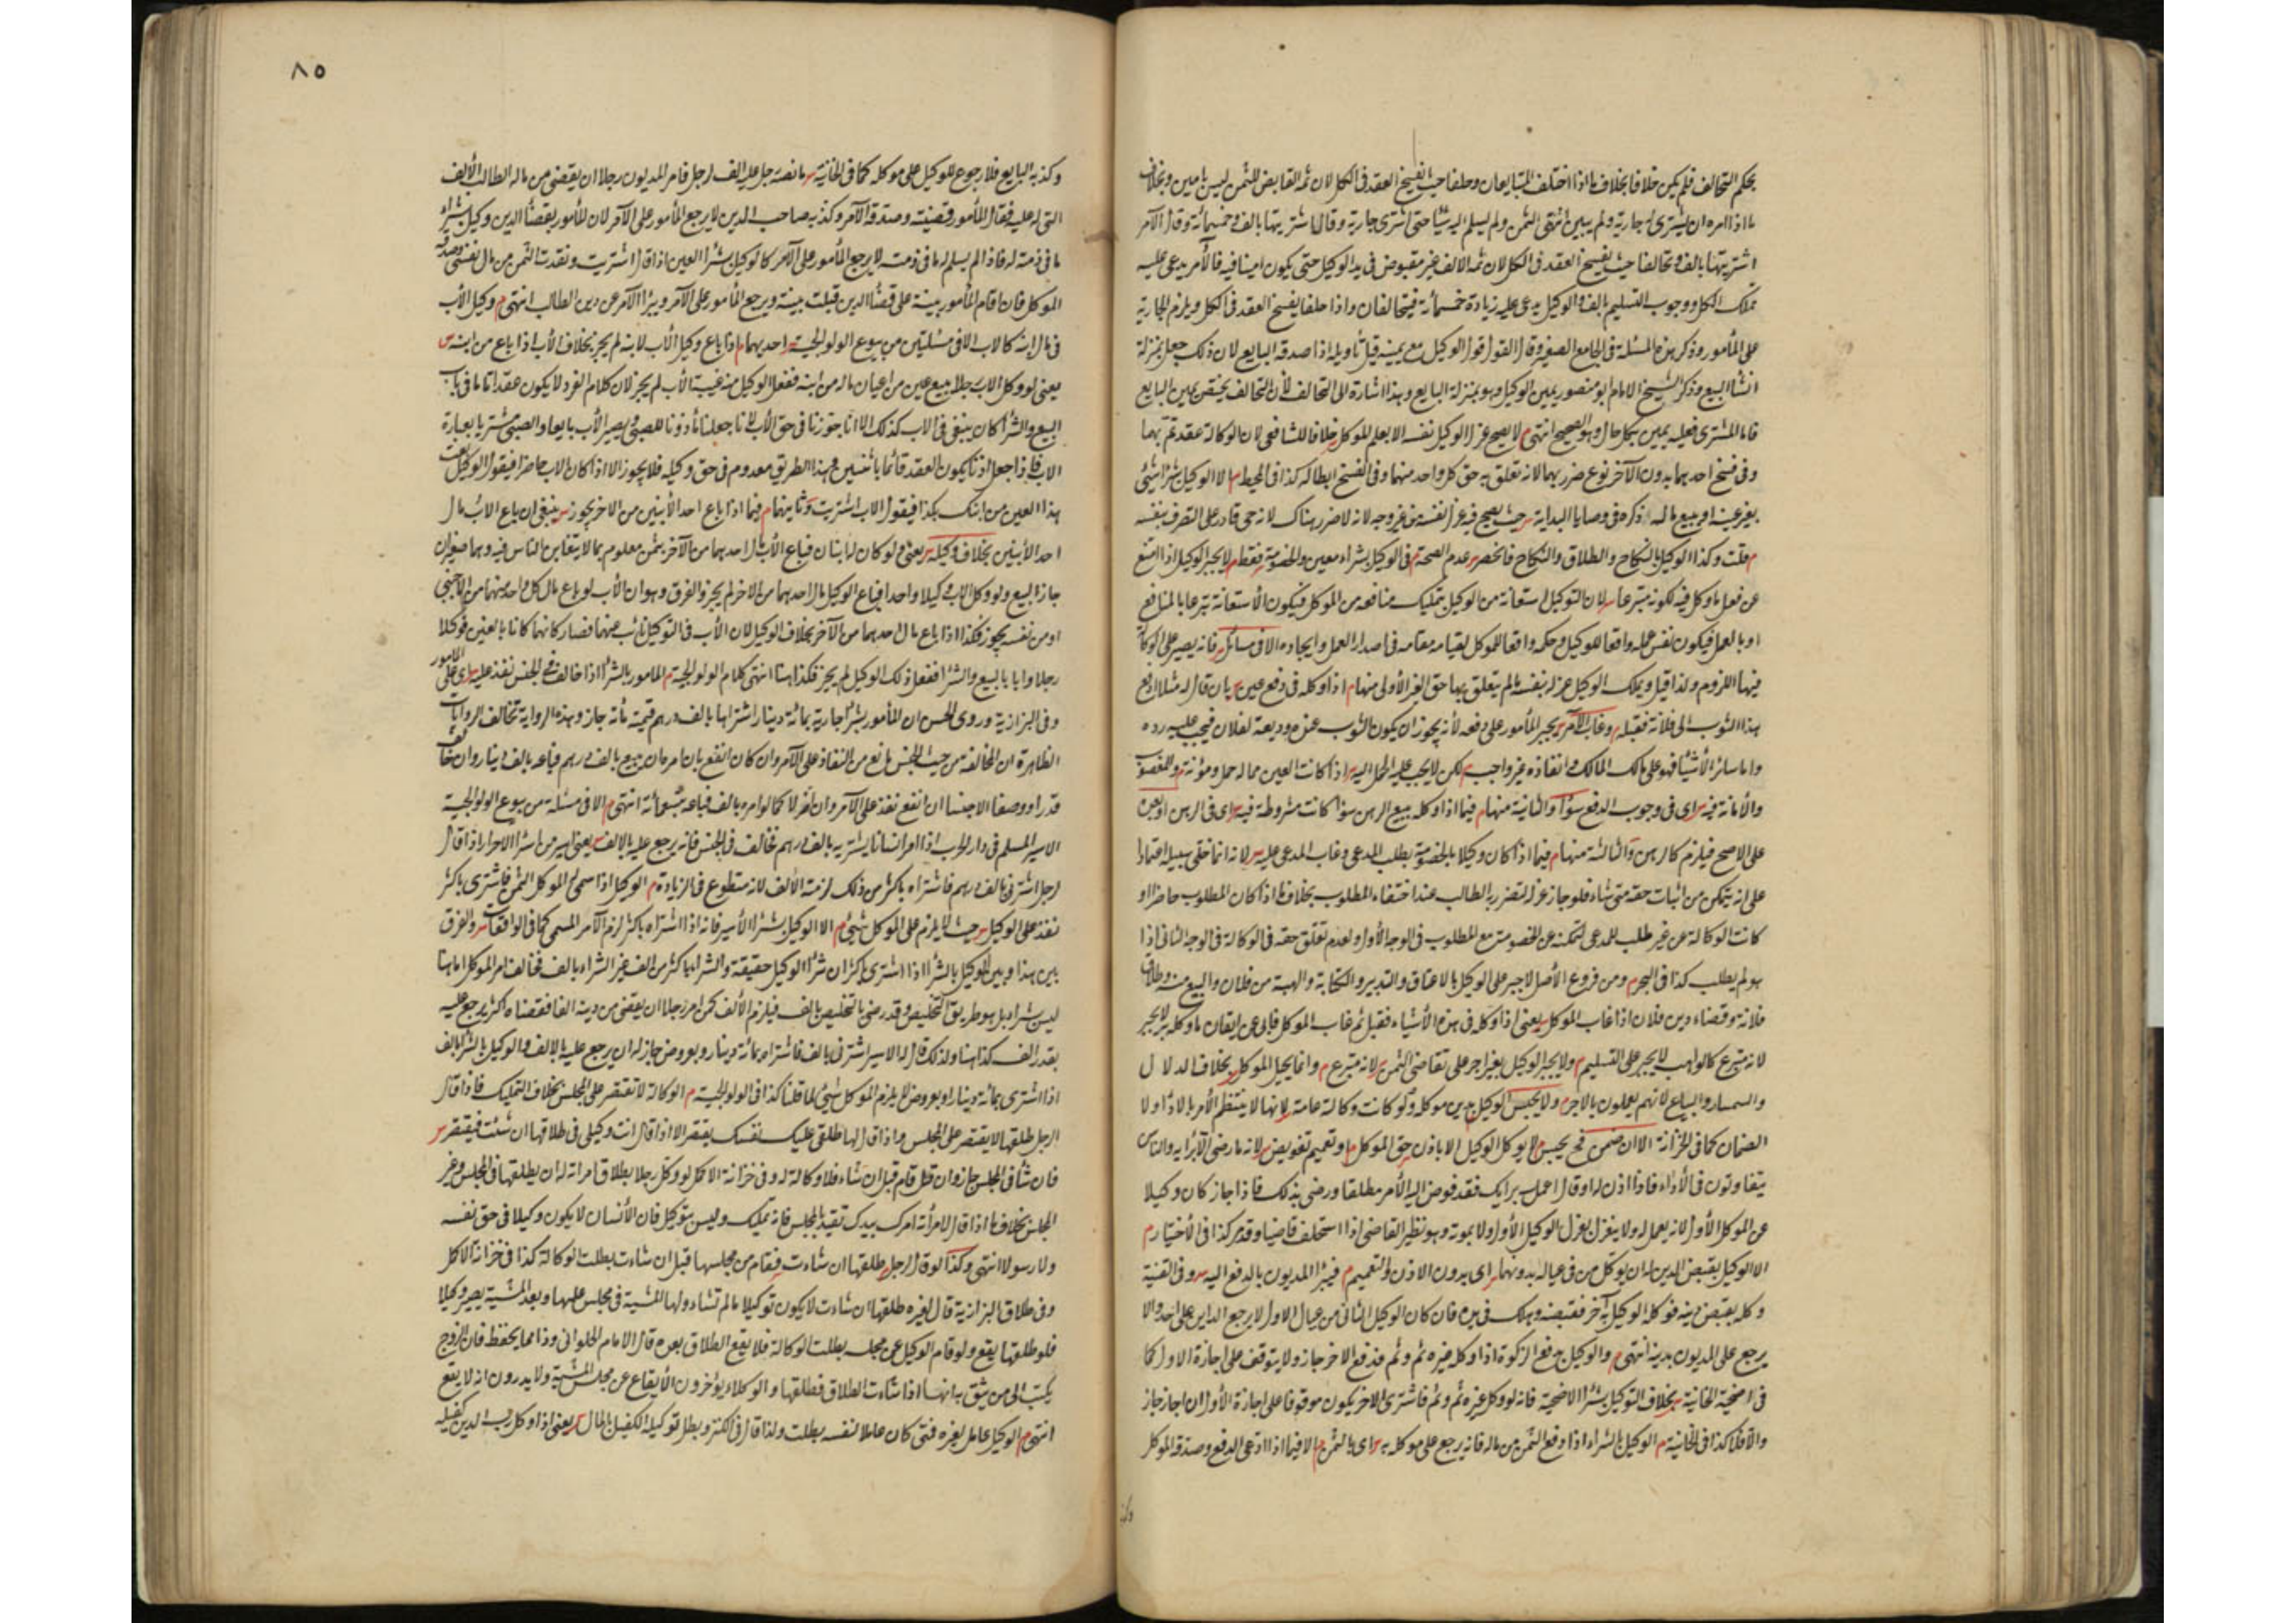 بحكم التحالف فلم يكن خلافا بخلاف ما اذا اختلف المتبايعان وحلفا حيث يفسخ العقد فى الكل لان ثمه القابض للثمن ليس بامين وبخلاف
ما اذا امره ان يشترى له جارية ولم يبين انتهى الثمن ولم يسلم اليه شيئا حتى اشترى جارية وقال اشتريتها بالف وخمسمائة وقال الآمر
اشتريتها بالف وتحالفا حيث يفسخ العقد فى الكل لان ثمه الالف غير مقبوض فى يد الوكيل حتى يكون امينا فيه فالآمر يدعى عليه
تملك الكل ووجوب التسليم بالف والوكيل يدعى عليه زيادة خمسمائة فيتحالفان واذا حلفا يفسخ العقد فى الكل ويلزم الجارية
على المأمور وذكر هذه المسئلة فى الجامع الصغير وقال القول قول الوكيل مع يمينه قيل تأويله اذا صدقه البايع لان ذلك جعل بمنزلة
انشاء البيع وذكر الشيخ الامام ابو منصور يمين الوكيل وهو بمنزلة البايع وهذا اشارة الى التحالف لأن التحالف يختص بيمين البايع
فاما المشترى فعليه يمين بكل حال وهو الصحيح انتهى م لا يصح عزل الوكيل نفسه الا بعلم الموكل خلافا للشافعى لان الوكالة عقد تم بهما
وفى فسخ احدهما بدون الآخر نوع ضرر بهما لانه تعلق به حق كل واحد منهما وفى الفسخ ابطاله كذا فى المحيط م الا الوكيل بشراء شئ
بغير عينه او ببيع ماله ذكره فى وصايا الهداية حيث يصح فيه عزل نفسه من غير وجه لانه لا ضرر هناك لانه حى قادر على التصرف بنفسه
م قلت وكذا الوكيل بالنكاح والطلاق والنكاح فانحصر عدم الصحة فى الوكيل بشراء معين والخصومة فقط م لا يجبر الوكيل اذا امتنع
عن فعل ما وكل فيه لكونه متبرعا لان التوكيل استعانة من الوكيل بتمليك منافعه من الموكل فيكون الاستعانة تبرعا بالمنافع
او بالعمل فيكون نفس عمله واقعا للوكيل وحكمه واقعا للموكل لقيامه مقامه فى اصدار العمل وايجاده الا فى مسائل فانه يصير على الوكالة
فيها اللزوم ولذا قيل ويملك الوكيل عزله بنفسه ما لم يتعلق بها حق الغير الأولى منها م اذا وكله فى دفع عين بان قال له مثلا ادفع
هذا الثوب الى فلانة فقبله وغاب الآمر يجبر المأمور على دفعه لأنه يجوز ان يكون الثوب عنده وديعة لفلان فيجب عليه رده
واما سائر الأشياء فهو على ملك المالك وانفاذه غير واجب م لكن لا يجب عليه الحمل اليه اذا كانت العين مما له حمل ومؤنة والمغصوب
والأمانة فيه اى فى وجوب الدفع سواء والثانية منها م فيما اذا وكله ببيع الرهن سواء كانت مشروطة فيه اى فى الرهن او بعده
على الاصح فيلزم كالرهن والثالثة منها م فيما اذا كان وكيلا بالخصومة بطلب المدعى وغاب المدعى عليه لانه انما خلى سبيله اعتمادا
على انه يتمكن من اثبات حقه متى شاء فلو جاز عزله تضرر به الطالب عند اختفاء المطلوب بخلاف ما اذا كان المطلوب حاضرا او
كانت الوكالة عن غير طلب المدعى لتمكنه عن الخصومة مع المطلوب فى الوجه الأول ولعدم تعلق حقه فى الوكالة فى الوجه الثانى اذا
هو لم يطلب كذا فى البحر م ومن فروع الأصل لا جبر على الوكيل بالاعتاق والتدبير والكتابة والهبة من فلان والبيع منه وطلاق
فلانة وقضاء دين فلان اذا غاب الموكل يعنى اذا وكله فى هذه الأشياء فقبل ثم غاب الموكل فابى عن ايقاع ما وكله به لا يجبر
لانه متبرع كالواهب لا يجبر على التسليم م ولا يجبر الوكيل بغير اجر على تقاضى الثمن لانه متبرع م وانما يحيل الموكل بخلاف الدلال
والسمسار والبياع لانهم يعملون بالاجر م ولا يحبس الوكيل بدين موكله ولو كانت وكالة عامة لانها لا ينتظم الأمر بالاداء ولا
الضمان كما فى الخزانة الا ان ضمن فح يحبس م لا يوكل الوكيل الا باذن حق الموكل م او تعميم تفويض لانه ما رضى الا برأيه والناس
يتفاوتون فى الأداء فاذا اذن له او قال اعمل برايك فقد فوض اليه الأمر مطلقا ورضى بذلك فاذا جاز كان وكيلا
عن الموكل الأول لانه يعمل له ولا ينعزل بعزل الوكيل الأول ولا بموته وهو نظير القاضى اذا استخلف قاضيا وقد مر كذا فى الأختيار م
الا الوكيل بقبض الدين له ان يوكل من فى عياله بدونهما اى بدون الاذن والتعميم م فيبرأ المديون بالدفع اليه وفى القنية
وكله بقبض دينه فوكل الوكيل آخر فقبضه وهلك فى يده فان كان الوكيل الثانى من عيال الاول لا يرجع الداين على احد والا
يرجع على المديون بدينه انتهى م والوكيل بدفع الزكوة اذا وكل غيره ثم وثم فدفع الاخر جاز ولا يتوقف على اجازة الاول كما
فى اضحية الخانية بخلاف التوكيل بشراء الاضحية فانه لو وكل غيره ثم وثم فاشترى الاخر يكون موقوفا على اجازة الأول ان اجاز جاز
والا فلا كذا فى الخانية م الوكيل بالشراء اذا دفع الثمن من ماله فانه يرجع على موكله به اى بالثمن م الا فيما اذا ادعى الدفع وصدقه الموكل
٨٥
وكذبه البايع فلا رجوع للوكيل على موكله كما فى الخانية ما نصه رجل عليه الف لرجل فامر المديون رجلا ان يقضى من ماله الطالب الألف
التى له عليه فقال المأمور قضيته وصدقه الآمر وكذبه صاحب الدين لا يرجع المأمور على الآمر لان المأمور بقضاء الدين وكيل بشراء
ما فى ذمته له فاذا لم يسلم له ما فى ذمته لا يرجع المأمور على الآمر كالوكيل بشراء العين اذا قال اشتريت ونقدت الثمن من مال نفسى وصدقه
الموكل فان اقام المأمور بينة على قضاء الدين قبلت بينته ويرجع المأمور على الآمر ويبرأ الآمر عن دين الطالب انتهى م وكيل الأب
فى مال ابنه كالاب الا فى مسئلتين من بيوع الولوالجية احديهما م اذا باع وكيل الأب لابنه لم يجز بخلاف الأب اذا باع من ابنه
يعنى لو وكل الاب رجلا ببيع عين من اعيان ماله من ابنه ففعل الوكيل من غيبة الأب لم يجز لان كلام الفرد لا يكون عقدا تاما فى باب
البيع والشراء كان ينبغى فى الاب كذلك الا انا جوزنا فى حق الأب لانا جعلنا مأذونا للصبى ويصير الأب بايعا والصبى مشتريا بعبارة
الاب فاذا جعل اذنا يكون العقد قائما باثنين وهذا الطريق معدوم فى حق وكيله فلا يجوز الا اذا كان الاب حاضرا فيقول الوكيل بعت
هذا العين من ابنك بكذا فيقول الاب اشتريت وثانيهما م فيما اذا باع احد الأبنين من الاخر يجوز ينبغى ان باع الاب مال
احد الأبنين بخلاف وكيله يعنى لو كان له ابنان فباع الأب مال احدهما من الآخر بثمن معلوم بما لا يتغابن الناس فيه وهما صغيران
جاز البيع ولو وكل الاب وكيلا واحدا فباع الوكيل مال احدهما من الاخر لم يجز والفرق وهو ان الأب لو باع مال كل واحد منهما من الأجنبى
او من نفسه يجوز فكذا اذا باع مال احدهما من الآخر بخلاف الوكيل لان الأب فى التوكيل نائب عنهما فصار كانهما كانا بالغين فوكلا
رجلا وايابا بالبيع والشراء ففعل ذلك الوكيل لم يجز فكذا هنا انتهى كلام الولوالجية م المامور بالشراء اذا خالف فى الجنس نفذ عليه اى على المامور
وفى البزازية وروى الحسن ان المأمور بشراء جارية بمائة دينار اشتراها بالف درهم قيمته مائة جاز وهذه الرواية تخالف الروايات
الظاهرة ان المخالفة من حيث الجنس مانع من النفاذ على الآمر وان كان انفع بان امر مان يبيع بالف درهم فباعه بالف دينار وان خالف
قدرا ووصفا لا جنسا ان انفع نفذ على الآمر وان اضر لا كما لو امره بالف فباعه بتسعمائة انتهى م الا فى مسئلة من بيوع الولوالجية
الاسير المسلم فى دار الحرب اذا امر انسانا يشتريه بالف درهم فخالف فى الجنس فانه يرجع عليه بالالف يعنى اسير من اسراء الاحرار اذا قال
لرجل اشترنى بالف درهم فاشتراه باكثر من ذلك لزمته الألف لانه متطوع فى الزيادة م الوكيل اذا سمى له الموكل الثمن فاشترى باكثر
نفذ على الوكيل حيث لا يلزم على الموكل شئ م الا الوكيل بشراء الأسير فانه اذا اشتراه باكثر لزم الآمر المسمى كما فى الواقعات والفرق
بين هذا وبين الوكيل بالشراء اذا اشترى باكثر ان شراء الوكيل حقيقة والشراء باكثر من الف غير الشراء بالف فخالف امر الموكل اما هنا
ليس شراء بل هو طريق التخليص وقد رضى بالتخليص بالف فيلزم الألف كمن امر رجلا ان يقضى من دينه الفا فقضاه اكثر يرجع عليه
بقدر الف كذا هنا ولذلك قال له الاسير اشترنى بالف فاشتراه بمائة دينار وبعروض جاز له ان يرجع عليه بالالف والوكيل بالشراء بالف
اذا اشترى بمائة دينار او بعروض لا يلزم الموكل شئ لما قلنا كذا فى الولوالجية م الوكالة لا تقتصر على المجلس بخلاف التمليك فاذا قال
الرجل طلقها لا يقتصر على المجلس واذا قال لها طلقى عليك نفسك يقتصر الا اذا قال انت وكيلى فى طلاقها ان شئت فيقتصر
فان شاء فى المجلس جاز وان قيل قام قبل ان شاء فلا وكالة له وفى خزانة الاكمل لو وكل رجلا بطلاق امراته له ان يطلقها فى المجلس وغير
المجلس بخلاف ما اذا قال لامرأته امرك بيدك تقيد بالمجلس فانه تمليك وليس بتوكيل فان الأنسان لا يكون وكيلا فى حق نفسه
ولا رسولا انتهى وكذا لو قال لرجل طلقها ان شاءت فقام من مجلسها قبل ان شاءت بطلت الوكالة كذا فى خزانة الاكمل
وفى طلاق البزازية قال لغيره طلقها ان شاءت لا يكون توكيلا ما لم تشاء ولها المشية فى مجلس علمها وبعد المشية يصير وكيلا
فلو طلقها يقع ولو قام الوكيل عن مجلسه بطلت الوكالة فلا يقع الطلاق بعده قال الامام الحلوانى وذا مما يحفظ فان الزوج
يكتب الى من يثق به انها اذا شاءت الطلاق فطلقها والوكلاء يؤخرون الأيقاع عن مجلس المشية ولا يدرون انه لا يقع
انتهى م الوكيل عامل لغيره فمتى كان عاملا لنفسه بطلت ولذا قال فى الكنز وبطل توكيله الكفيل بالمال يعنى اذا وكل رب الدين كفيله